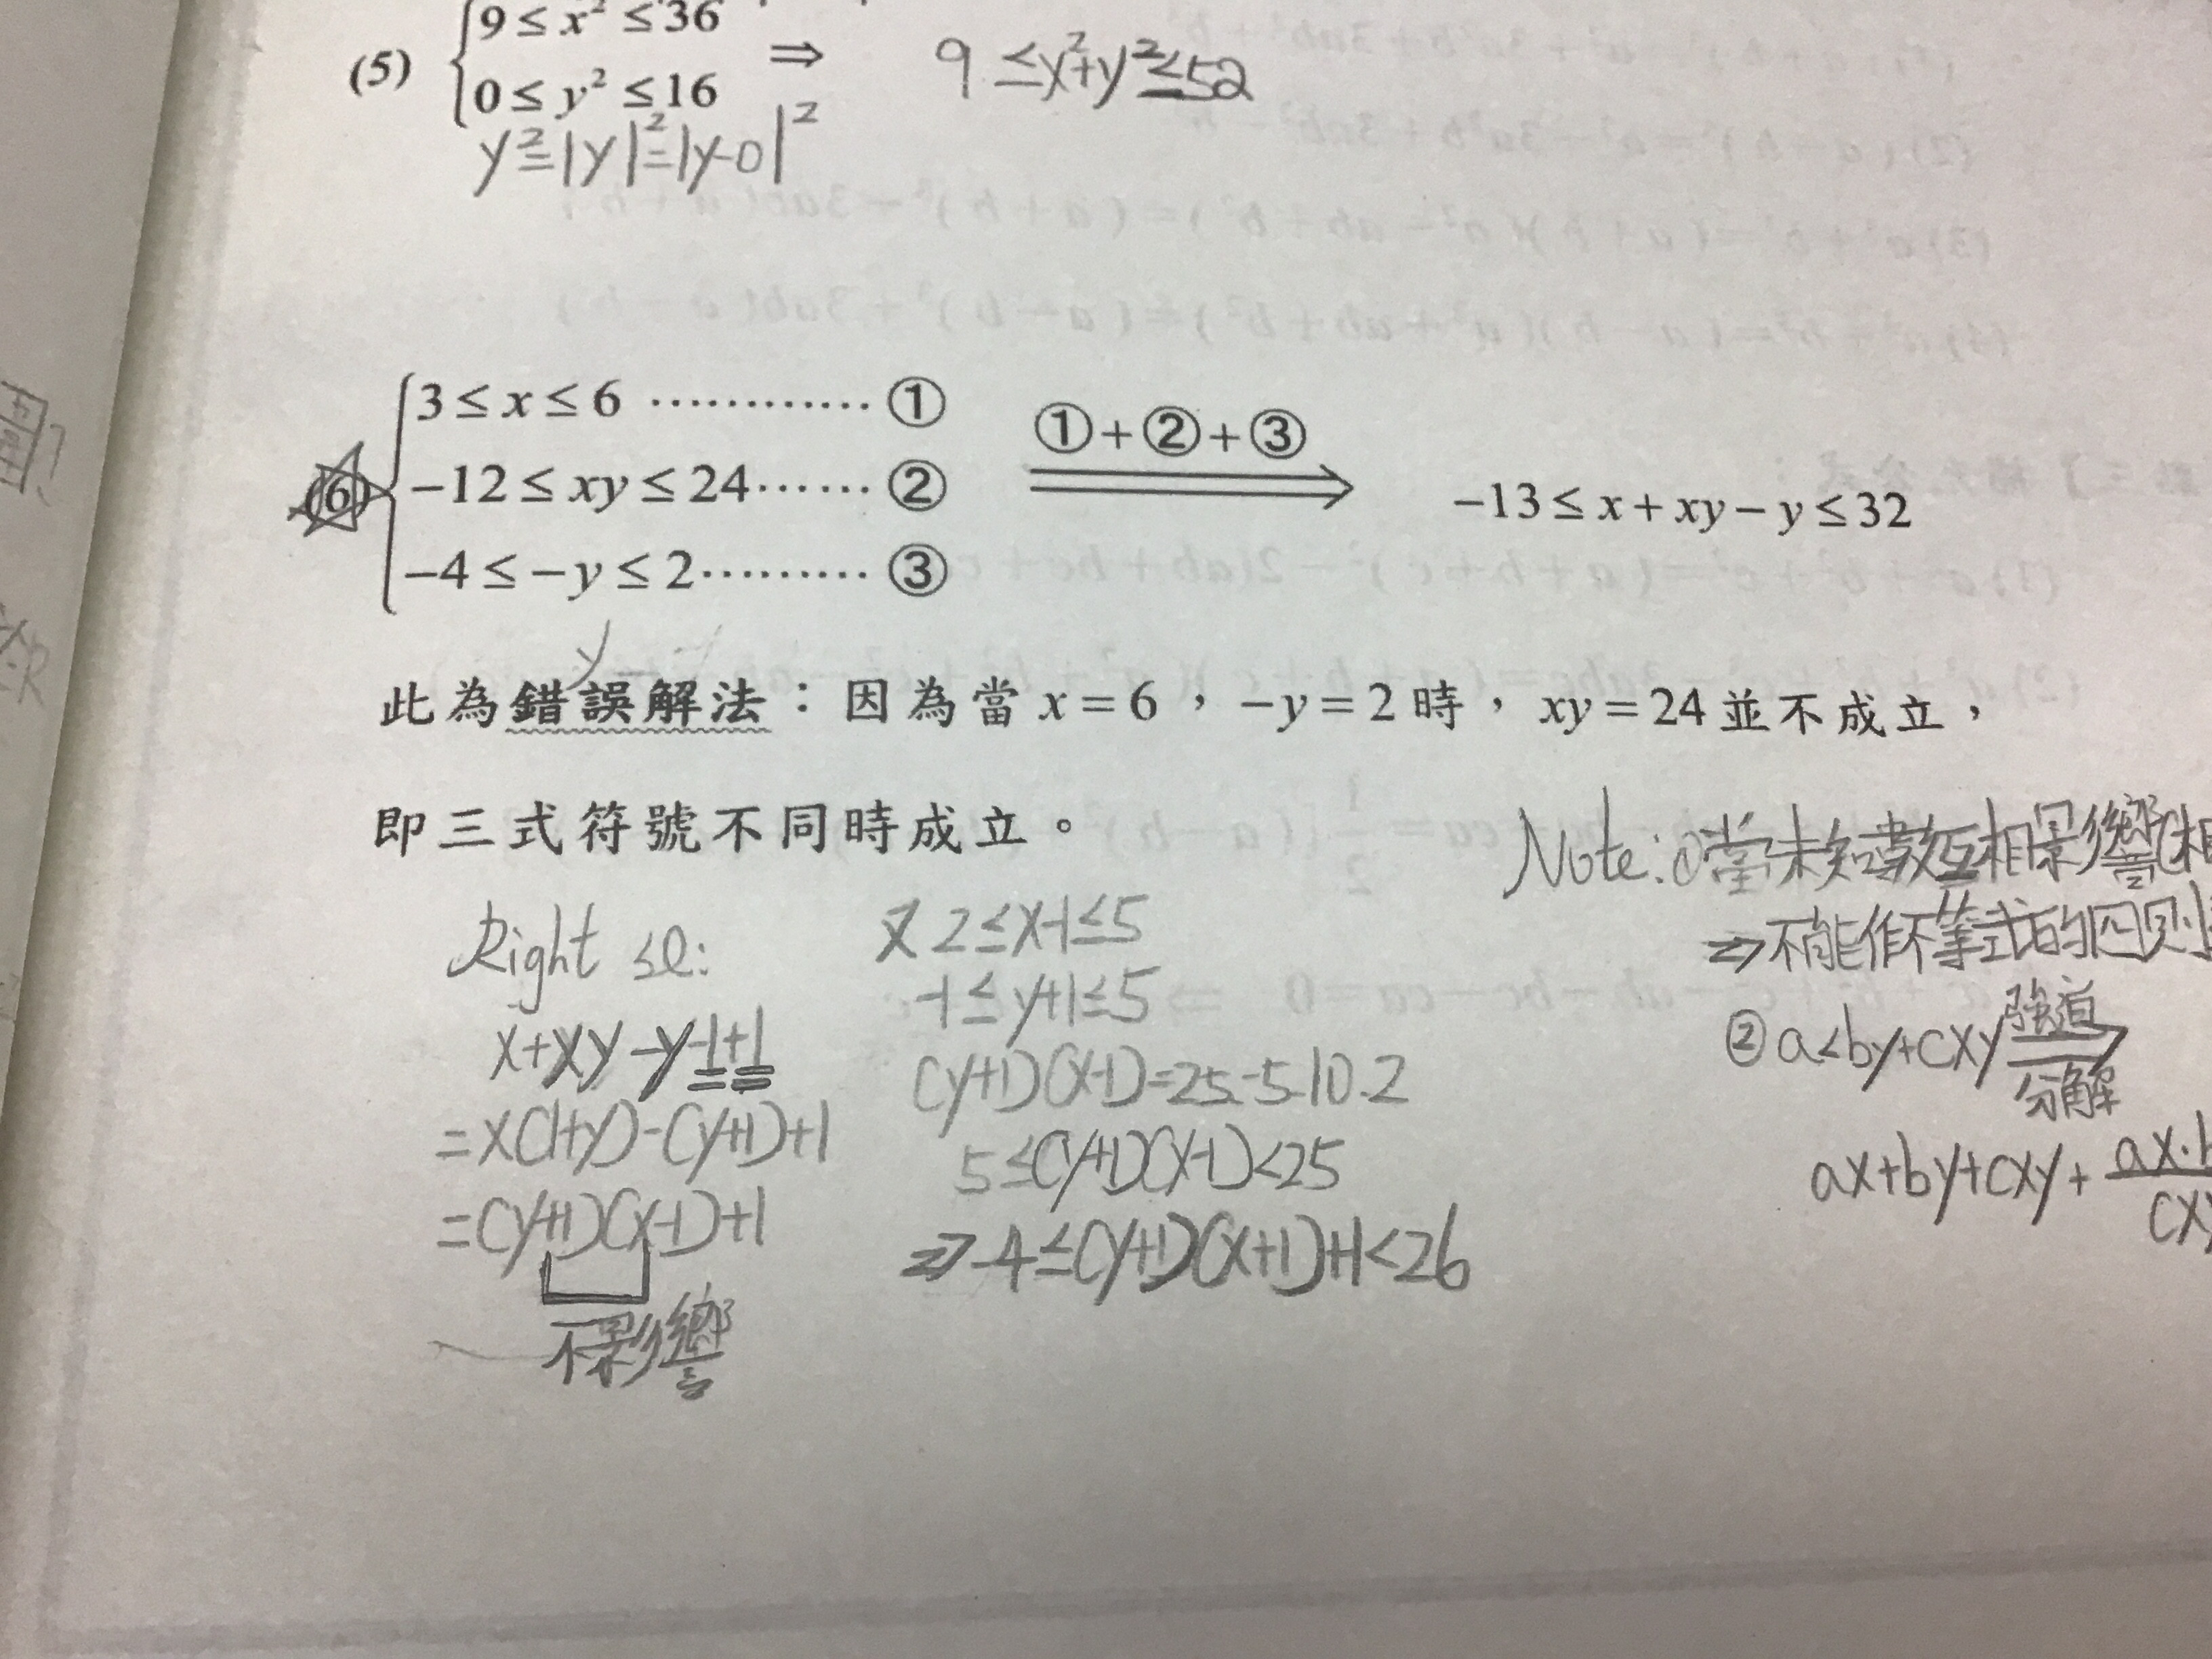 (5) { 9 ≤ x² ≤ 36
0 ≤ y² ≤ 16 ⇒ 9 ≤ x²+y² ≤ 52
y² = |y|² = |y-0|²
(6) { 3 ≤ x ≤ 6 ………… ①
−12 ≤ xy ≤ 24…… ②
−4 ≤ −y ≤ 2……… ③
①+②+③
−13 ≤ x + xy − y ≤ 32
此為錯誤解法：因為當 x = 6 ， −y = 2 時， xy = 24 並不成立，
即三式符號不同時成立。
Right
x+xy-y-1+1
=x(1+y)-(y+1)+1
=(y+1)(x-1)+1
不影響
又 2≤x-1≤5
-1≤y+1≤5
(y+1)(x-1)=25.-5.10.2
5≤(y+1)(x-1)<25
⇒ -4≤(y+1)(x+1)+1<26
Note:①當未知數互相影響(相
⇒不能作不等式的四則
②a<by+cxy 強迫
分解
ax+by+cxy+